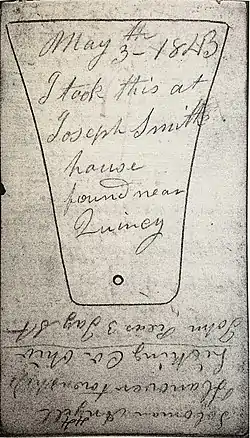 May th
3 - 1843
I took this at
Joseph Smiths
house
found near
Quincy
Solomon
Hanover township
Licking Co. Ohio
John 3 Day St